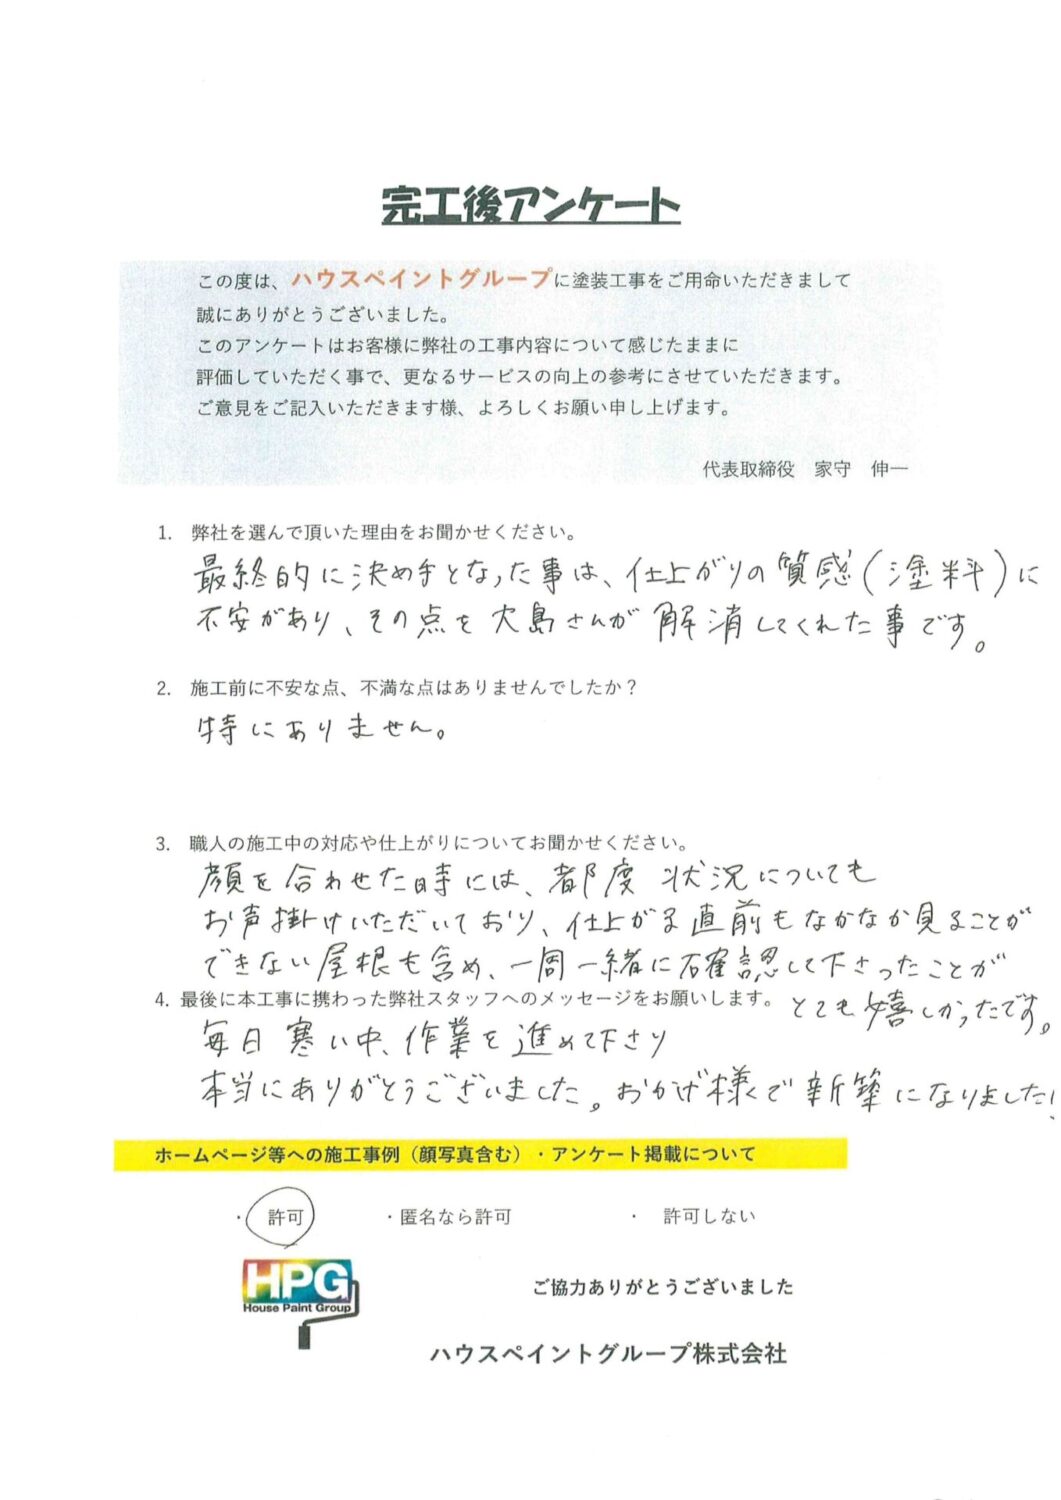 完工後アンケート
この度は、ハウスペイントグループに塗装工事をご用命いただきまして
誠にありがとうございました。
このアンケートはお客様に弊社の工事内容について感じたままに
評価していただく事で、更なるサービスの向上の参考にさせていただきます。
ご意見をご記入いただきます様、よろしくお願い申し上げます。
代表取締役 家守 伸一
1. 弊社を選んで頂いた理由をお聞かせください。
最終的に決め手となった事は、仕上がりの質感(塗料)に
不安があり、その点を大島さんが解消してくれた事です。
2. 施工前に不安な点、不満な点はありませんでしたか？
特にありません。
3. 職人の施工中の対応や仕上がりについてお聞かせください。
顔を合わせた時には、都度状況についても
お声掛けいただいており、仕上がる直前もなかなか見ることが
できない屋根も含め、一周一緒に確認して下さったことが
とても嬉しかったです。
4. 最後に本工事に携わった弊社スタッフへのメッセージをお願いします。
毎日寒い中、作業を進めて下さり
本当にありがとうございました。おかげ様で新築になりました!
ホームページ等への施工事例（顔写真含む）・アンケート掲載について
・ 許可 ・匿名なら許可 ・ 許可しない
HPG
House Paint Group
ご協力ありがとうございました
ハウスペイントグループ株式会社